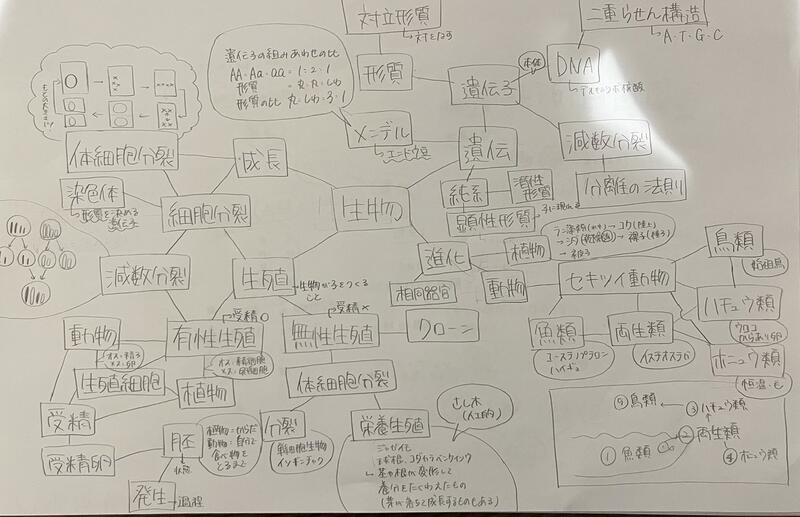 対立形質
二重らせん構造
A・T・G・C
遺伝子の組みあわせの比
AA・Aa・aa=1:2:1
形質 =丸・丸・しわ
形質の比 丸・しわ・3・1
形質
遺伝子
本体
DNA
デオキシリボ核酸
もとのだいたい
体細胞分裂
成長
メンデル
エンドウ豆
遺伝
減数分裂
分離の法則
染色体
形質を決める
遺伝子
細胞分裂
生物
純系
潜性
形質
顕性形質
子に現れる
減数分裂
生殖
生物が子をつくる
こと
進化
植物
コケ(陸上)
→シダ
→裸子(種子)
→被子
相同器官
動物
セキツイ動物
鳥類
始祖鳥
ハチュウ類
ウロコ
からあり卵
魚類
ユーステノプテロン
ハイギョ
両生類
イクチオステガ
ホニュウ類
恒温・毛
動物
オス・精子
メス・卵
受精○
有性生殖
受精×
無性生殖
クローン
オス・精細胞
メス・卵細胞
生殖細胞
植物
体細胞分裂
受精
受精卵
胚
状態
植物=からだ
動物=自分で
食べ物を
とるまで
発生
過程
分裂
単細胞生物
イソギンチャク
栄養生殖
さし木
(人工的)
ジャガイモ
茎や根が変形して
養分をたくわえたもの
(芽が落ちて成長するものもある)
⑤鳥類
③ハチュウ類
②両生類
①魚類
④ホニュウ類